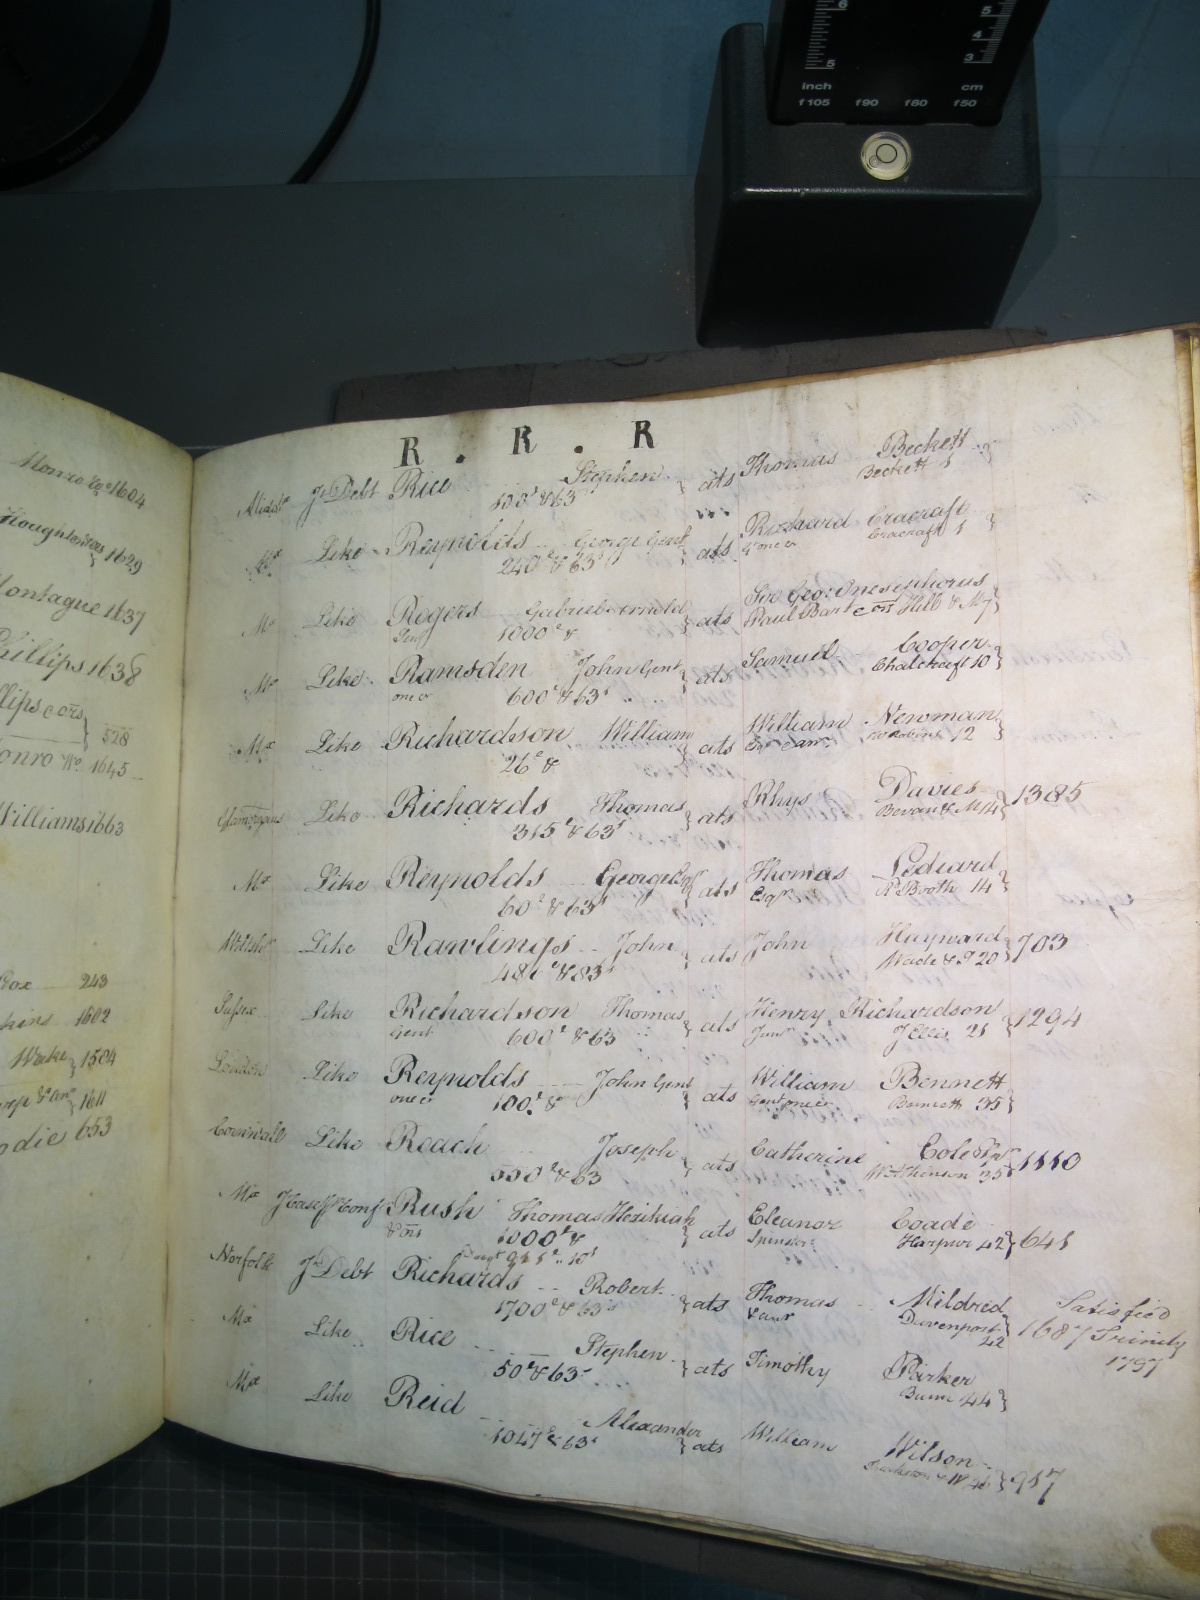 6
5
5
4
3
inch
cm
f105 f90 f80 f50
Monro &c 1604
1629
Montague 1637
Phillips 1638
528
Monro 1645
Williams 1663
Cox 243
1602
Wake 1504
1611
653
R . R . R
Middx Jt Debt Rice Stephen ats Thomas Beckett
100£ & 63s Beckett 1
Mx Like Reynolds George Gent ats Richard Cracraft
240£ & 63s one &c Cracraft 1
Mx Like Rogers Gabriel Arnold ats Sir Geo: Onesiphorus
Gent 1000£ & Paul Bart & ors Hill & M 7
Mx Like Ramsden John Gent ats Samuel Cooper
one &c 600£ & 63s Chalcraft 10
Mx Like Richardson William ats William Newman
26£ & 12
Glamorgans Like Richards Thomas ats Rhys Davies 1385
315£ & 63s Bevan & M 14
Mx Like Reynolds George Esqr ats Thomas Lediard
60£ & 63s Esqr R Booth 14
Wiltsh Like Rawlings John ats John Hayward 703
48 £ & 83s Wade & 20
Sussex Like Richardson Thomas ats Henry Richardson 1294
Gent 600£ & 63 Junr J Ellis 21
London Like Reynolds John Gent ats William Bennett
one &c 100£ & Gent one &c Bennett 35
Cornwall Like Roach Joseph ats Catherine Cole Spr 1110
550£ & 63 Wathinson 35
Mx J Case fr Conf Rush Thomas Hezikiah ats Eleanor Coade
& ors 1000£ & Spinster Harpur 42 641
Norfolk Jt Debt Richards Robert ats Thomas Mildred Satisfied
1700£ & 63s & anr Davenport 42 1687 Trinity
1797
Mx Like Rice Stephen ats Timothy Parker
50£ & 63s Bunn 44
Mx Like Reid Alexander ats William Wilson
1047£ & 63s & W 46 957